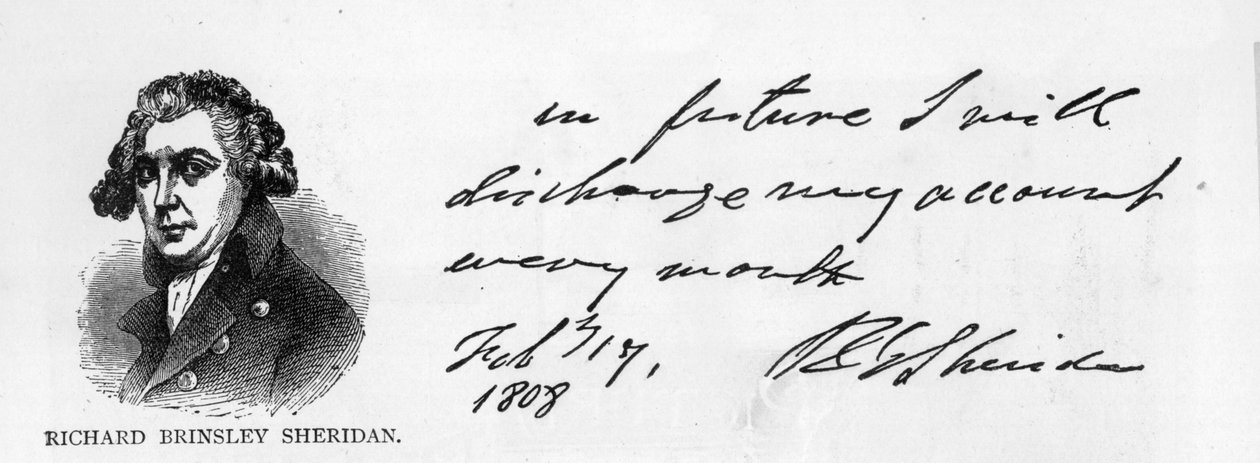 in future I will
discharge my account
every month
Feb
1808
R B Sheridan
RICHARD BRINSLEY SHERIDAN.